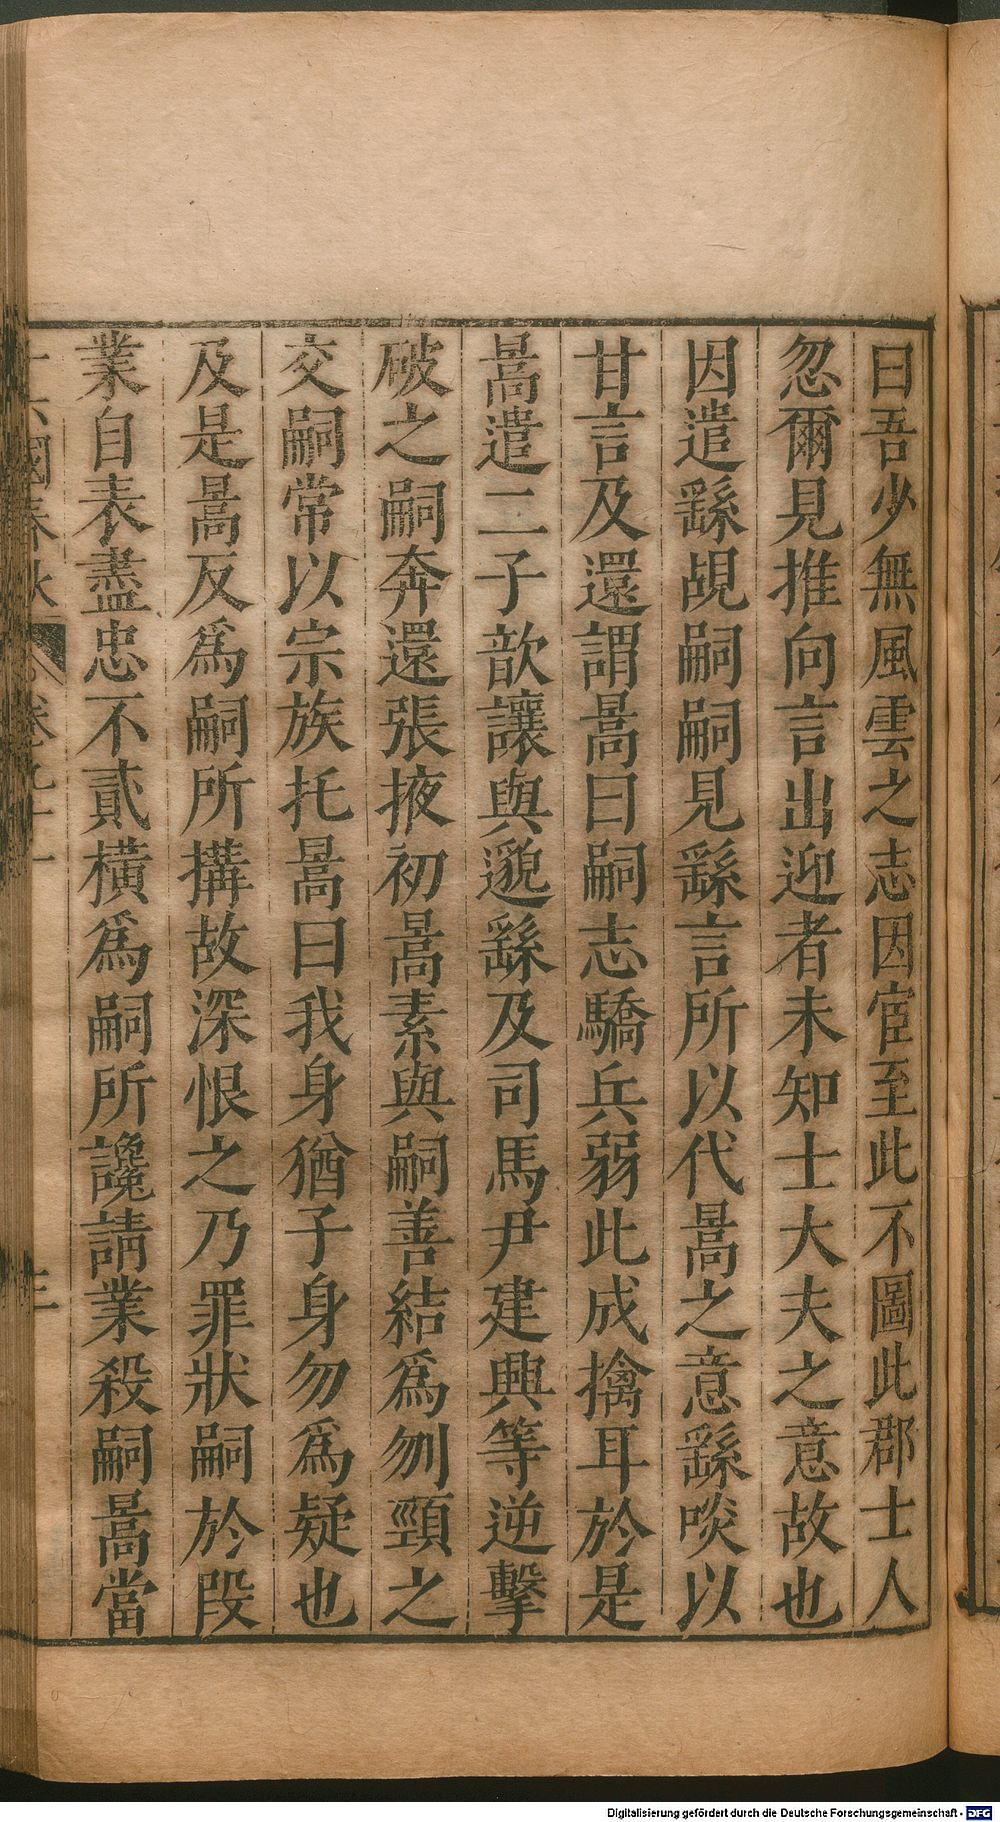 曰吾少無風雲之志因宦至此不圖此郡士人
忽爾見推向言出迎者未知士大夫之意故也
因遣繇覘嗣嗣見繇言所以代暠之意繇啖以
甘言及還謂暠曰嗣志驕兵弱此成擒耳於是
暠遣二子歆讓與邈繇及司馬尹建興等逆擊
破之嗣奔還張掖初暠素與嗣善結爲刎頸之
交嗣常以宗族托暠曰我身猶子身勿爲疑也
及是暠反爲嗣所搆故深恨之乃罪狀嗣於段
業自表盡忠不貳橫爲嗣所讒請業殺嗣暠當
十六國春秋 卷九十一 三
Digitalisierung gefördert durch die Deutsche Forschungsgemeinschaft - DFG